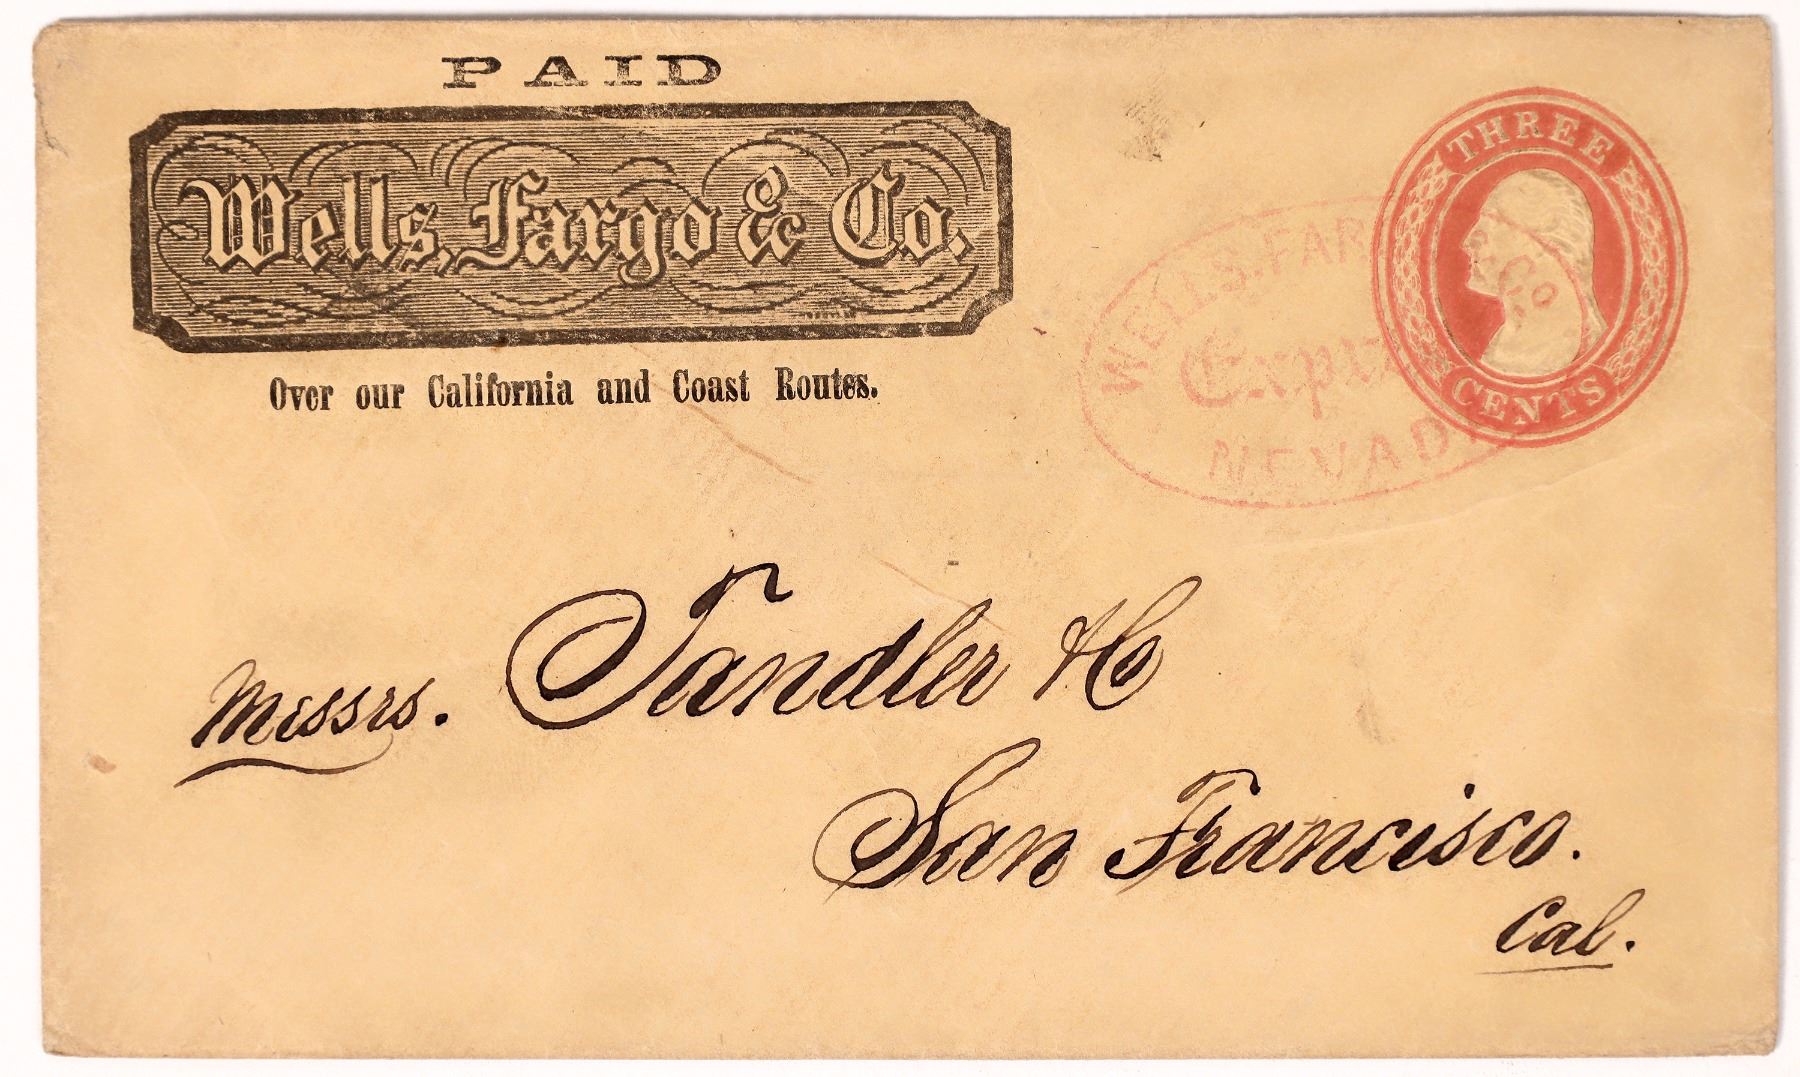 PAID
Wells, Fargo & Co.
Over our California and Coast Routes.
THREE
CENTS
WELLS. FAR & Co
Expr
NEVAD
Messrs. Tandler & Co
San Francisco.
Cal.